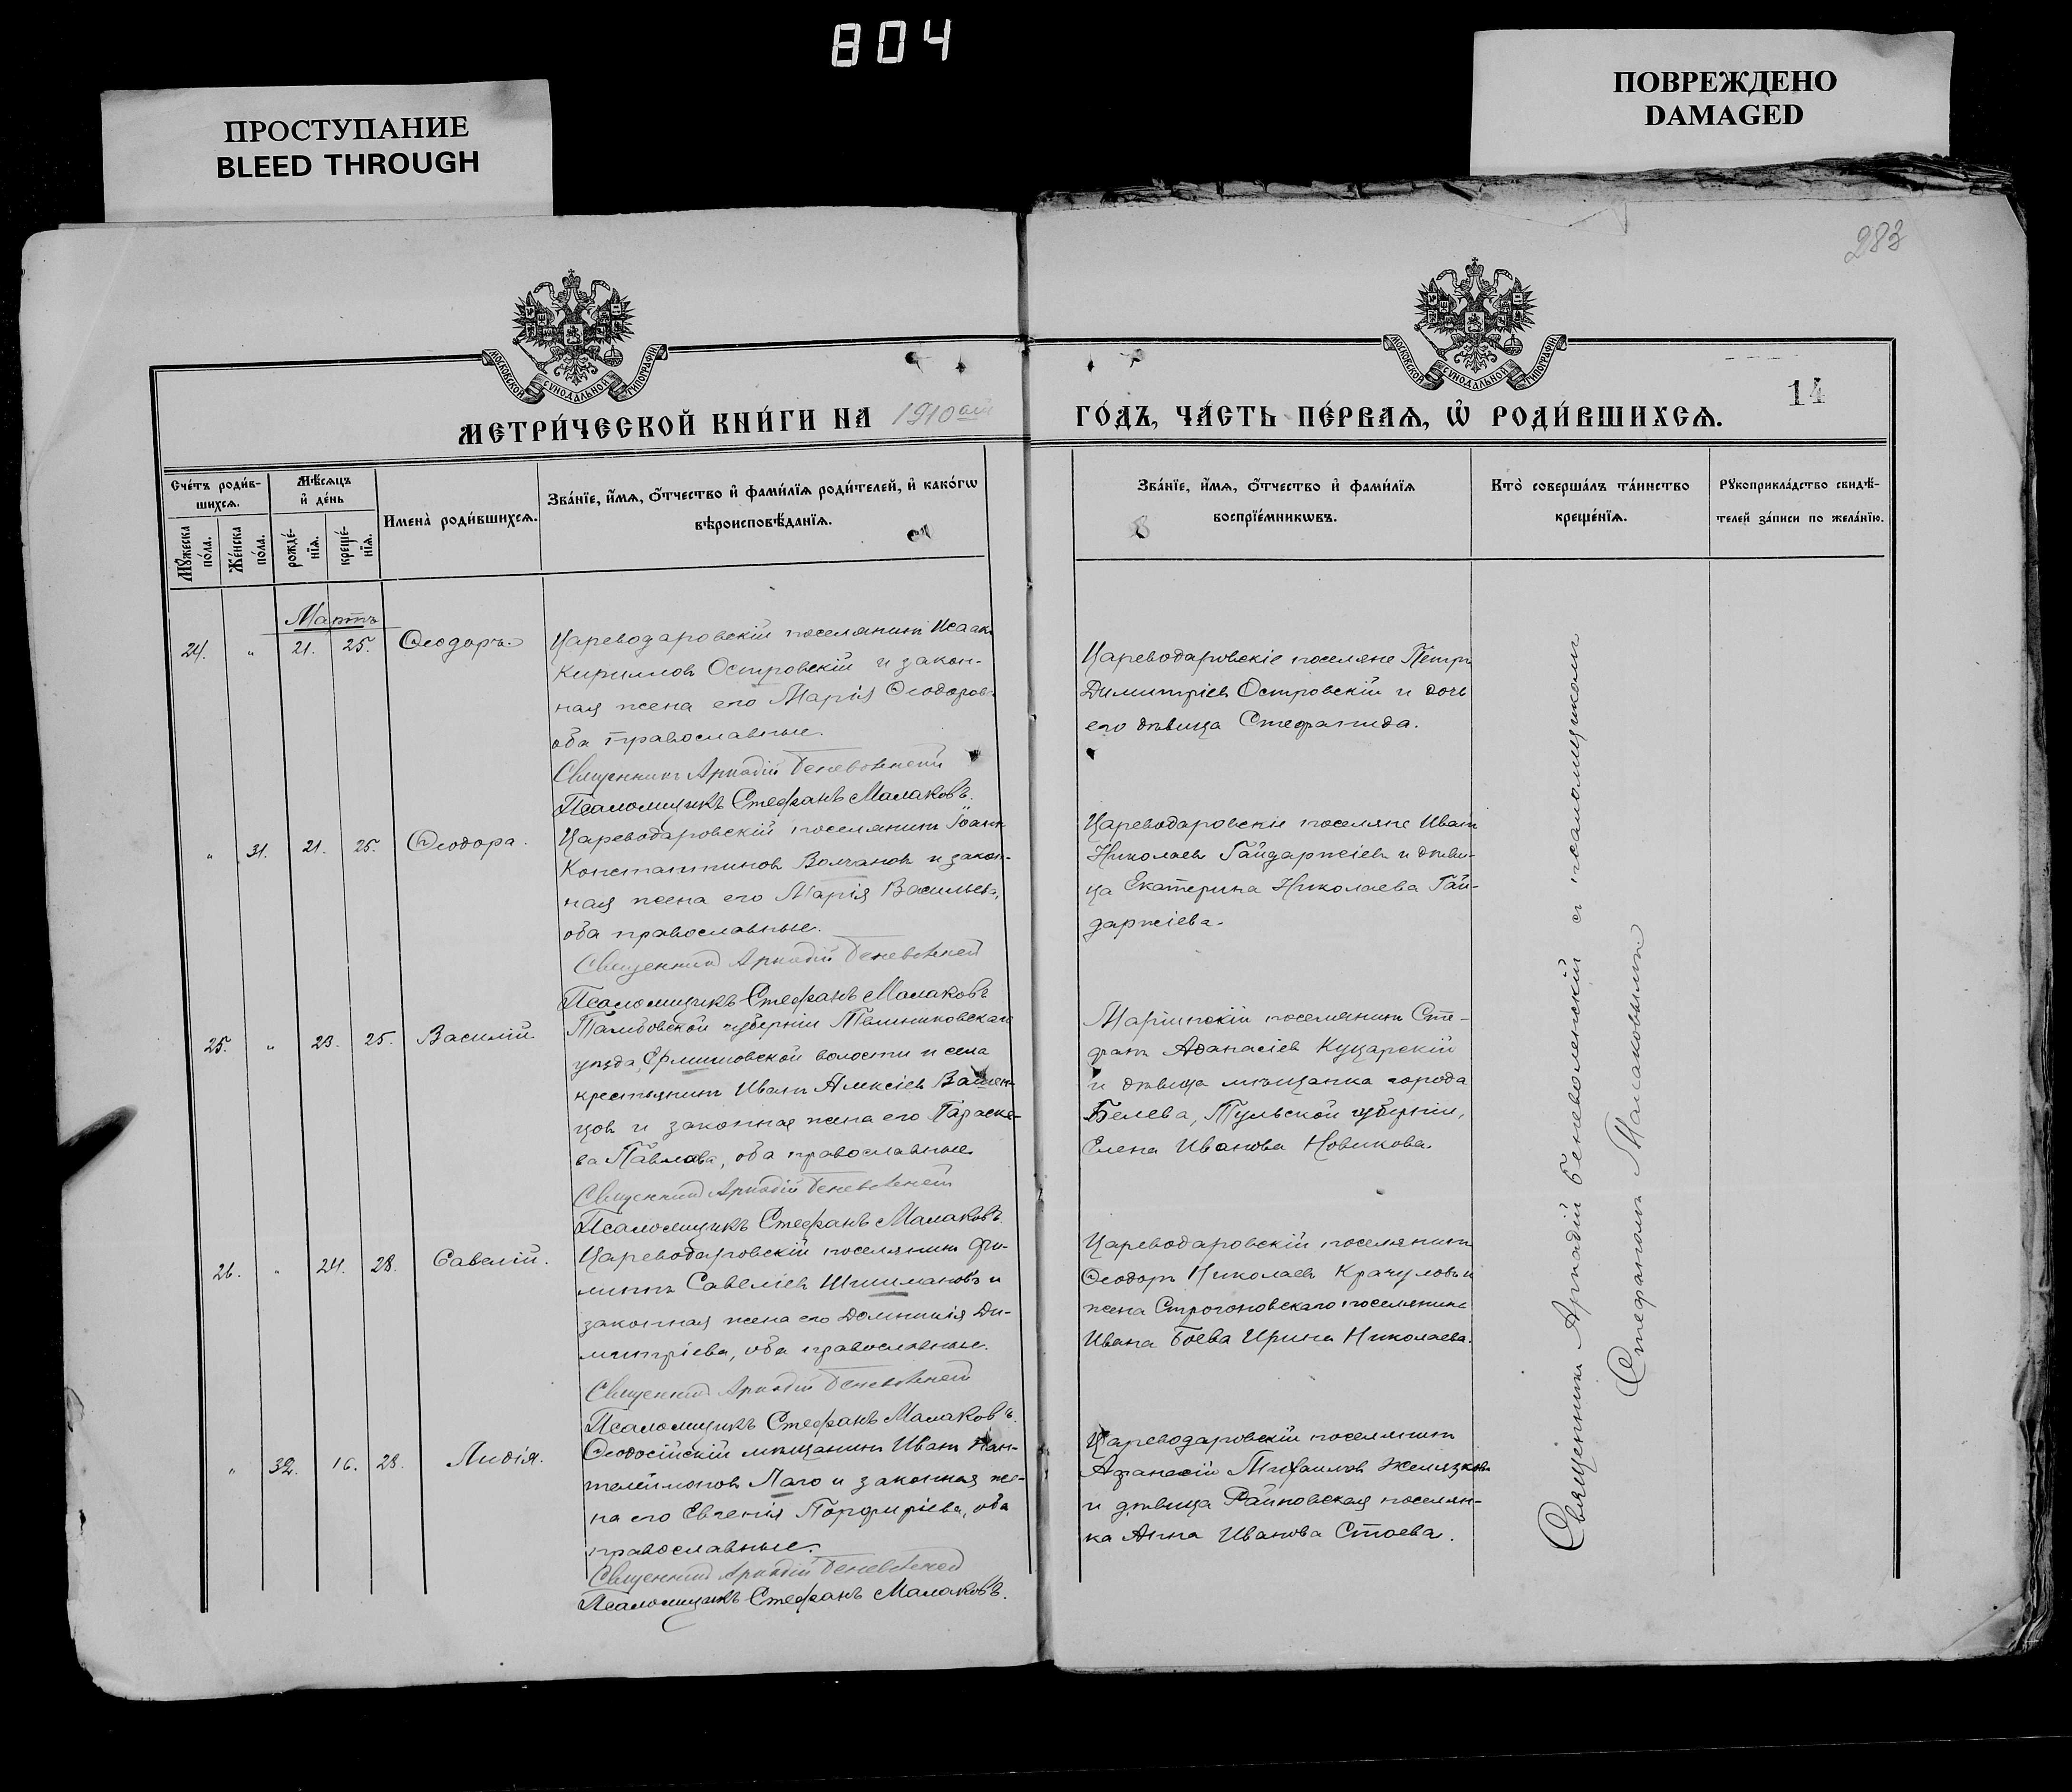 804
ПРОСТУПАНИЕ
BLEED THROUGH
ПОВРЕЖДЕНО
DAMAGED
283
МОСКОВСКОЙ СѴНОДАЛЬНОЙ ТИПОГРАФІИ
МОСКОВСКОЙ СѴНОДАЛЬНОЙ ТИПОГРАФІИ
14
МЕТРИ́ЧЕСКОЙ КНИ́ГИ НА 1910ый
ГО́ДЪ, ЧА́СТЬ ПЕ́РВАѦ, Ѡ҆ РОДИ́ВШИХСѦ.
Сче́тъ роди́в-
шихсѧ.
Мꙋ́жеска по́ла.
Же́нска по́ла.
Мѣ́сѧцъ
и҆ де́нь
рожде́-
нїѧ.
креще́-
нїѧ.
Имена̀ роди́вшихсѧ.
Зва́нїе, и҆́мѧ, ѻ҆́тчество и҆ фами́лїѧ роди́телей, и҆ како́гѡ
вѣроисповѣ́данїѧ.
Зва́нїе, и҆́мѧ, ѻ҆́тчество и҆ фами́лїѧ
воспрїе́мникѡвъ.
Кто̀ соверша́лъ та́инство
креще́нїѧ.
Рꙋкоприкла́дство свидѣ́-
телей за́писи по жела́нїю.
Мартъ
24. " 21. 25. Ѳеодоръ.
Цареводаровскій поселянинъ Исаакъ
Кирилловъ Островскій и закон-
ная жена его Марія Ѳеодоров.
оба православные.
Священникъ Аркадій Беневоленскій
Псаломщикъ Стефанъ Малаковъ.
Цареводаровскіе поселяне Петръ
Димитріевъ Островскій и дочь
его дѣвица Стефанида.
" 31. 21. 25. Ѳеодора.
Цареводаровскій поселянинъ Іоаннъ
Константиновъ Волчановъ и закон-
ная жена его Марія Васильева,
оба православные.
Священникъ Аркадій Беневоленскій
Псаломщикъ Стефанъ Малаковъ
Цареводаровскіе поселяне Иванъ
Николаевъ Гайдаржіевъ и дѣви-
ца Екатерина Николаева Гай-
даржіева.
25. " 23. 25. Василій.
Тамбовской губерніи Темниковскаго
уѣзда, Ермишовской волости и села
крестьянинъ Иванъ Алексіевъ
цовъ и законная жена его Параске-
ва Павлова, оба православные
Священникъ Аркадій Беневоленскій
Псаломщикъ Стефанъ Малаковъ.
Маріинскій поселянинъ Сте-
фанъ Аѳанасіевъ Куцарскій
и дѣвица мѣщанка города
Белева, Тульской губерніи,
Елена Иванова Новикова.
26. " 24. 28. Савелій.
Цареводаровскій поселянинъ Фи-
липпъ Савеліевъ Шишмановъ и
законная жена его Домникія Ди-
митріева, оба православные.
Священникъ Аркадій Беневоленскій
Псаломщикъ Стефанъ Малаковъ.
Цареводаровскій поселянинъ
Ѳеодоръ Николаевъ Крачуловъ и
жена Строгоновскаго поселянина
Ивана Боева Ирина Николаева.
" 32. 16. 28. Лидія.
Ѳеодосійскій мѣщанинъ Иванъ Пан-
телеймоновъ Лаго и законная же-
на его Евгенія Порфиріева, оба
православные.
Священникъ Аркадій Беневоленскій
Псаломщикъ Стефанъ Малаковъ.
Цареводаровскій поселянинъ
Афанасій Михаиловъ Желязковъ
и дѣвица Райновская поселян-
ка Анна Иванова Стоева.
Священникъ Аркадій Беневоленскій съ псаломщикомъ
Стефаномъ Малаковымъ